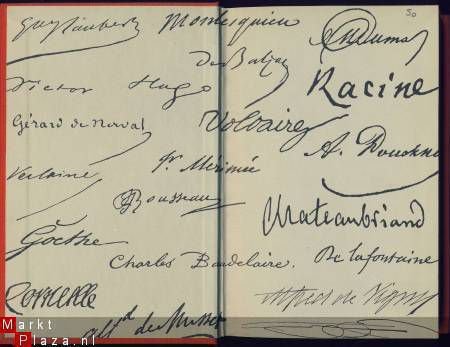 GuyFlaubert
Montesquieu
50
ADumas
De Balzac
Victor Hugo
Racine
Gérard de Nerval
Voltaire
A. Pouchkine
Verlaine
Pr. Mérimée
JJRousseau
Chateaubriand
Goethe
Charles Baudelaire.
De la fontaine
Corneille
Alfred de Vigny
Alfd de Musset
Markt
Plaza.nl